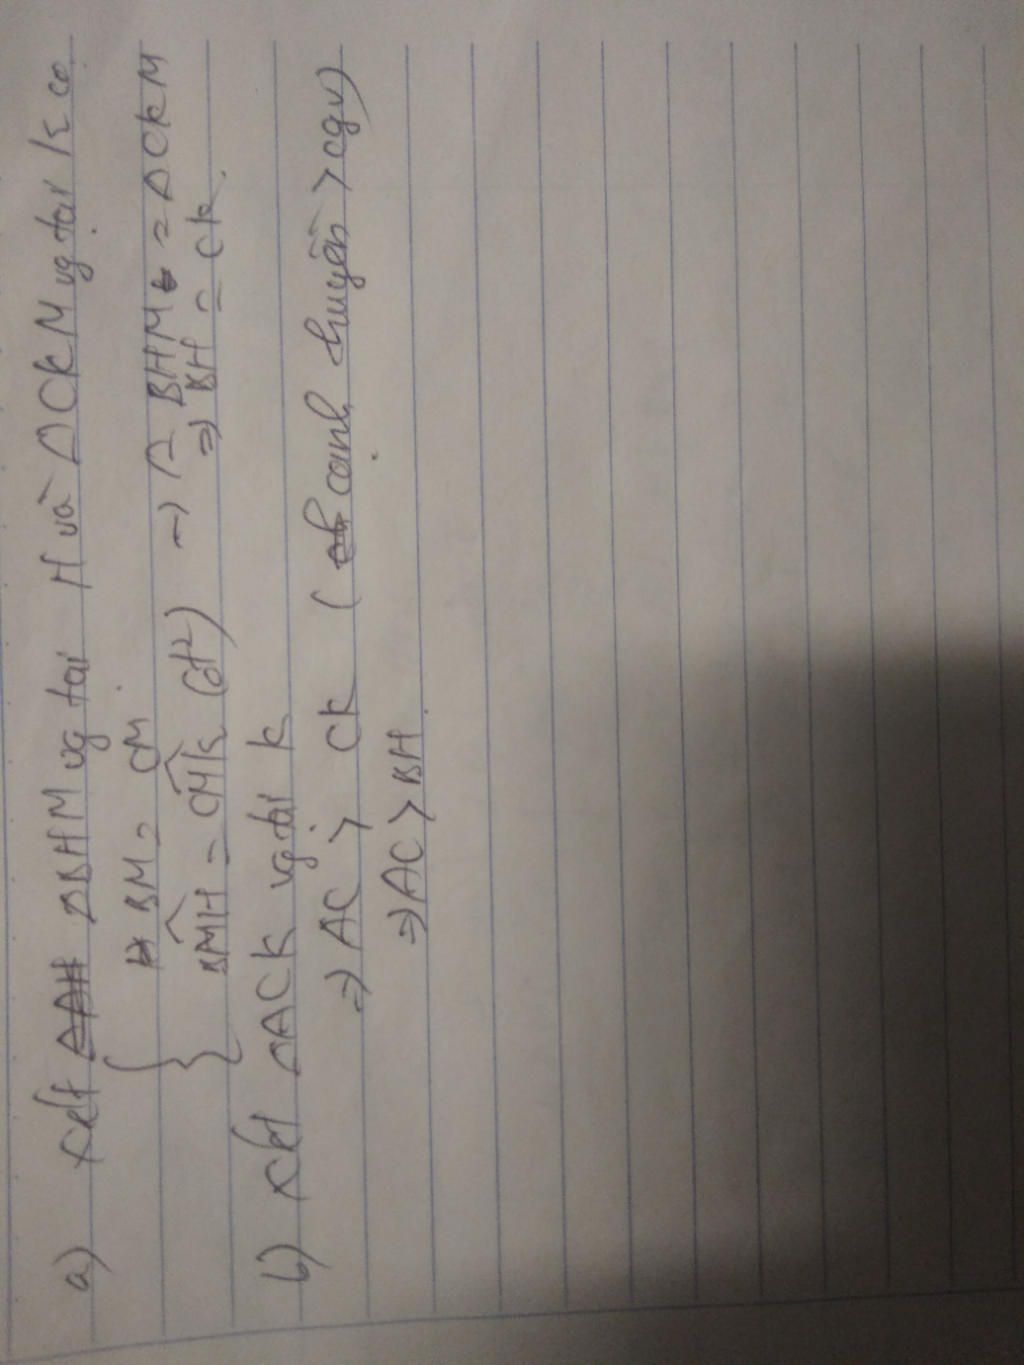 a) Xét ΔBHM vg tại H và ΔCKM vg tại K có
BM = CM
BMH = CMK (đ²) → Δ BHM = ΔCKM
⇒ BH = CK.
b) Xét ΔACK vg tại K
⇒ AC > CK (cạnh huyền > cgv)
⇒ AC > BH.